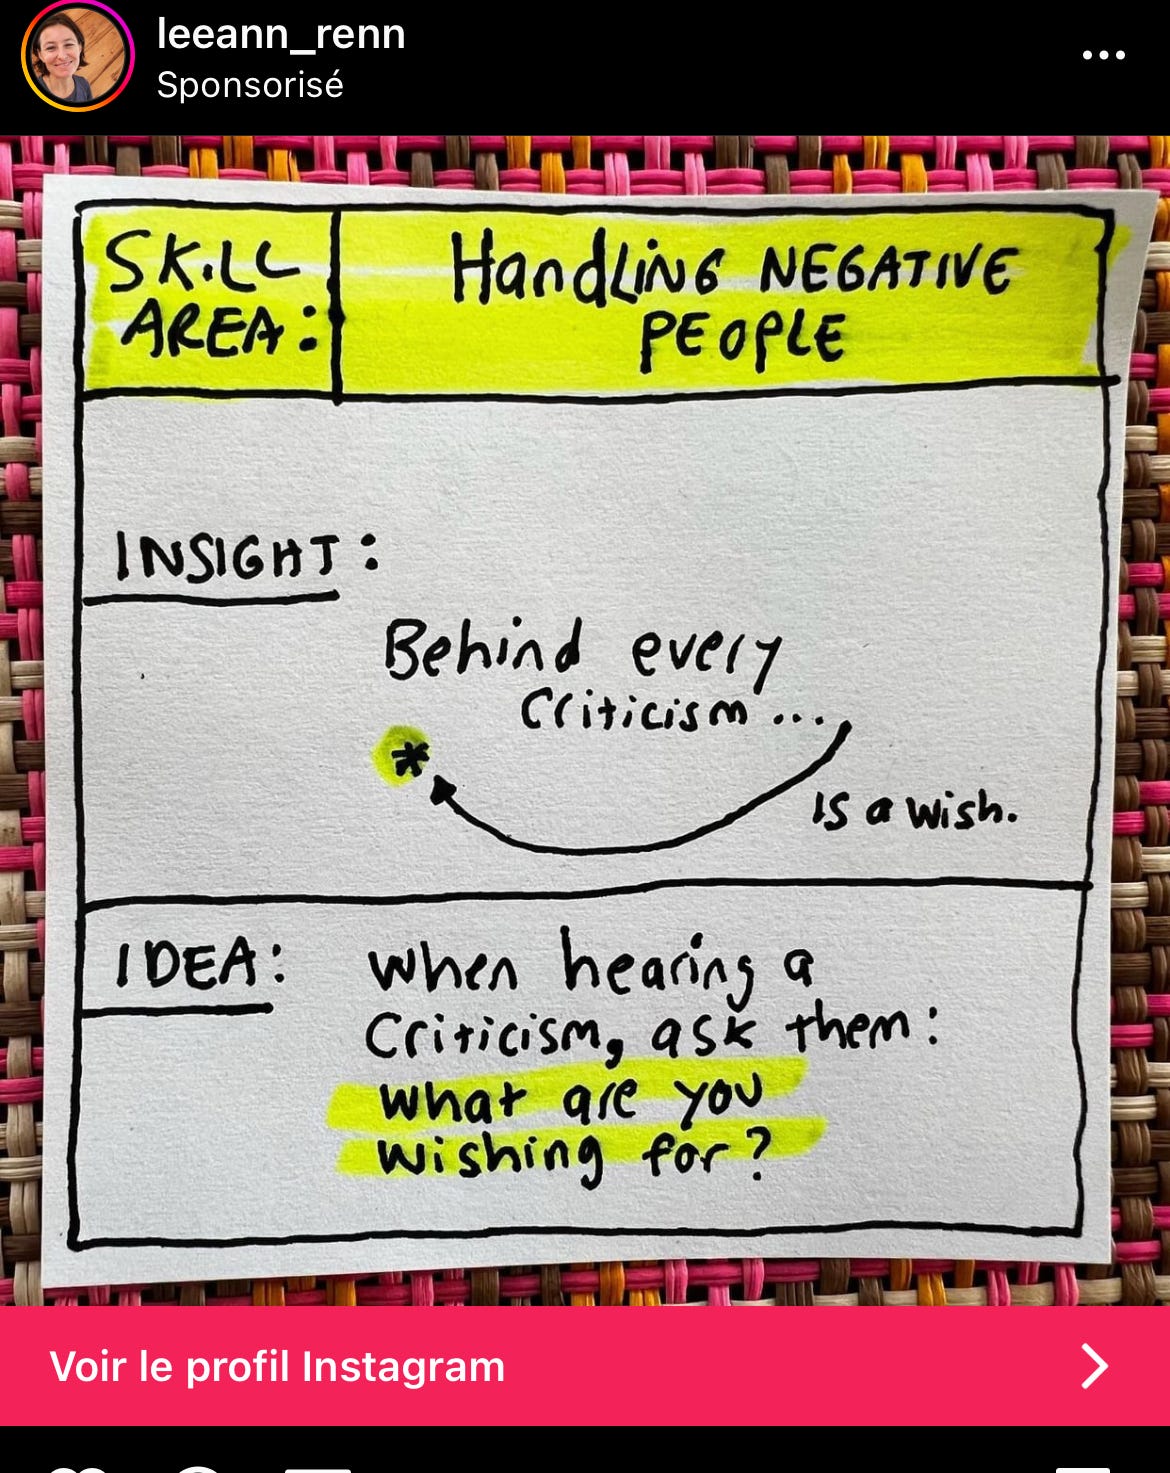 leeann_renn
Sponsorisé
SKILL
AREA:
HandLiNG NEGATIVE
PEOPLE
INSIGHT:
Behind every
Criticism...
*
is a wish.
IDEA:
when hearing a
Criticism, ask them:
what are you
wishing for?
Voir le profil Instagram